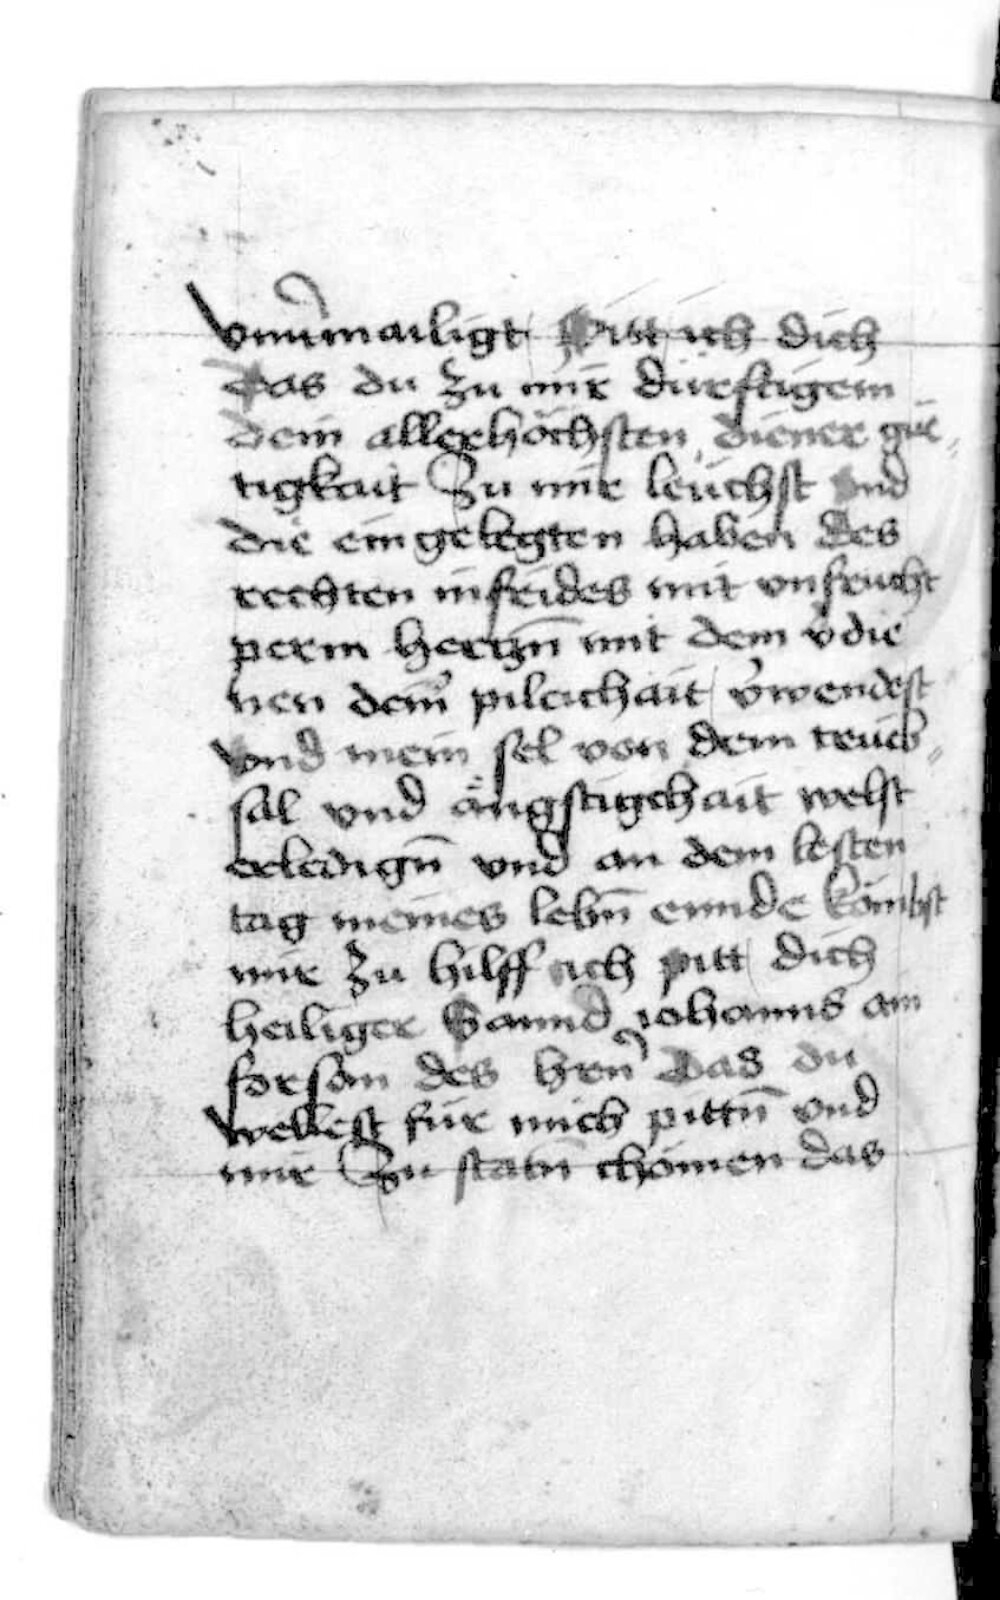 vnuermailigt Pitt ich dich
Das du zu mir dürftigem
dein allerhöchsten diener güe„
tigkait Zu mir leüchst vnd
die ein gelegten haben des
rechten infrides mit vnfrucht
perm hertzn̄ mit dem v̓die
nen dein̄ pileichait v̓wendest
vnd mein sel von dem trueb„
sal vnd ängstigchait welst
erledign̄ vnd an dem lesten
tag meines lebn̄ ennde kombst
mir zu hilff ich pitt dich
heiliger Sannd johanns am
forson des hren̓ Das du
wellest für mich pittn̄ vnd
mir Zu statn̄ chömen das